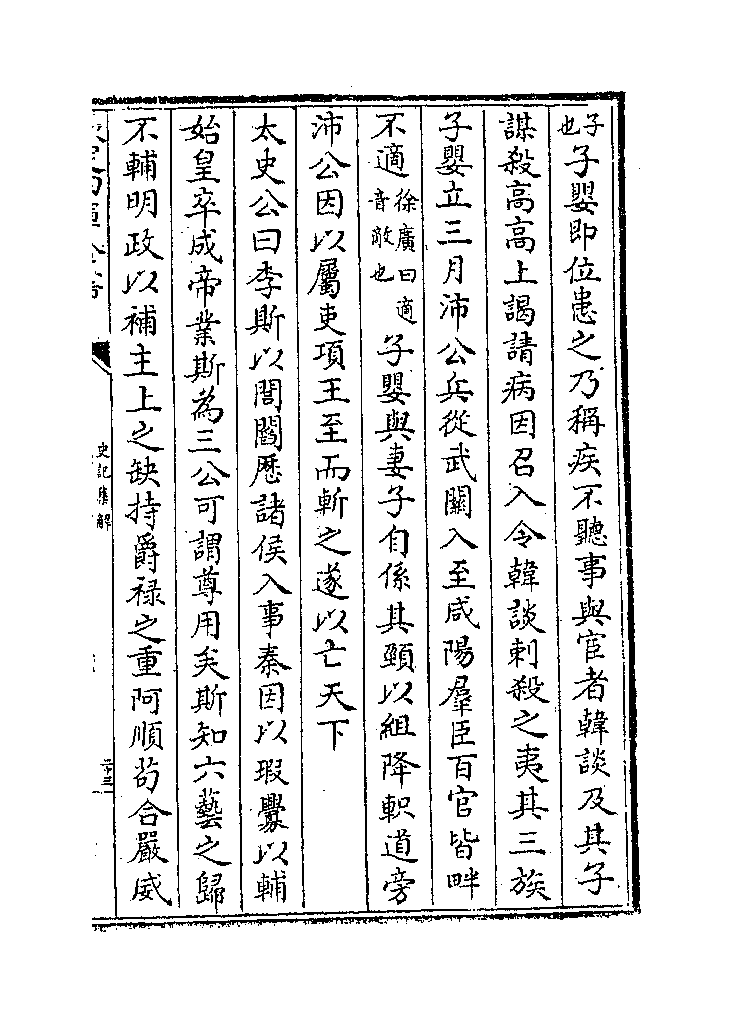 子也子嬰即位患之乃稱疾不聽事與宦者韓談及其子
謀殺高高上謁請病因召入令韓談刺殺之夷其三族
子嬰立三月沛公兵從武關入至咸陽羣臣百官皆畔
不適徐廣曰適音敵也子嬰與妻子自係其頸以組降軹道旁
沛公因以屬吏項王至而斬之遂以亡天下
太史公曰李斯以閭閻歴諸侯入事秦因以瑕釁以輔
始皇卒成帝業斯為三公可謂尊用矣斯知六藝之歸
不輔明政以補主上之缺持爵禄之重阿順苟合嚴威
史記集解